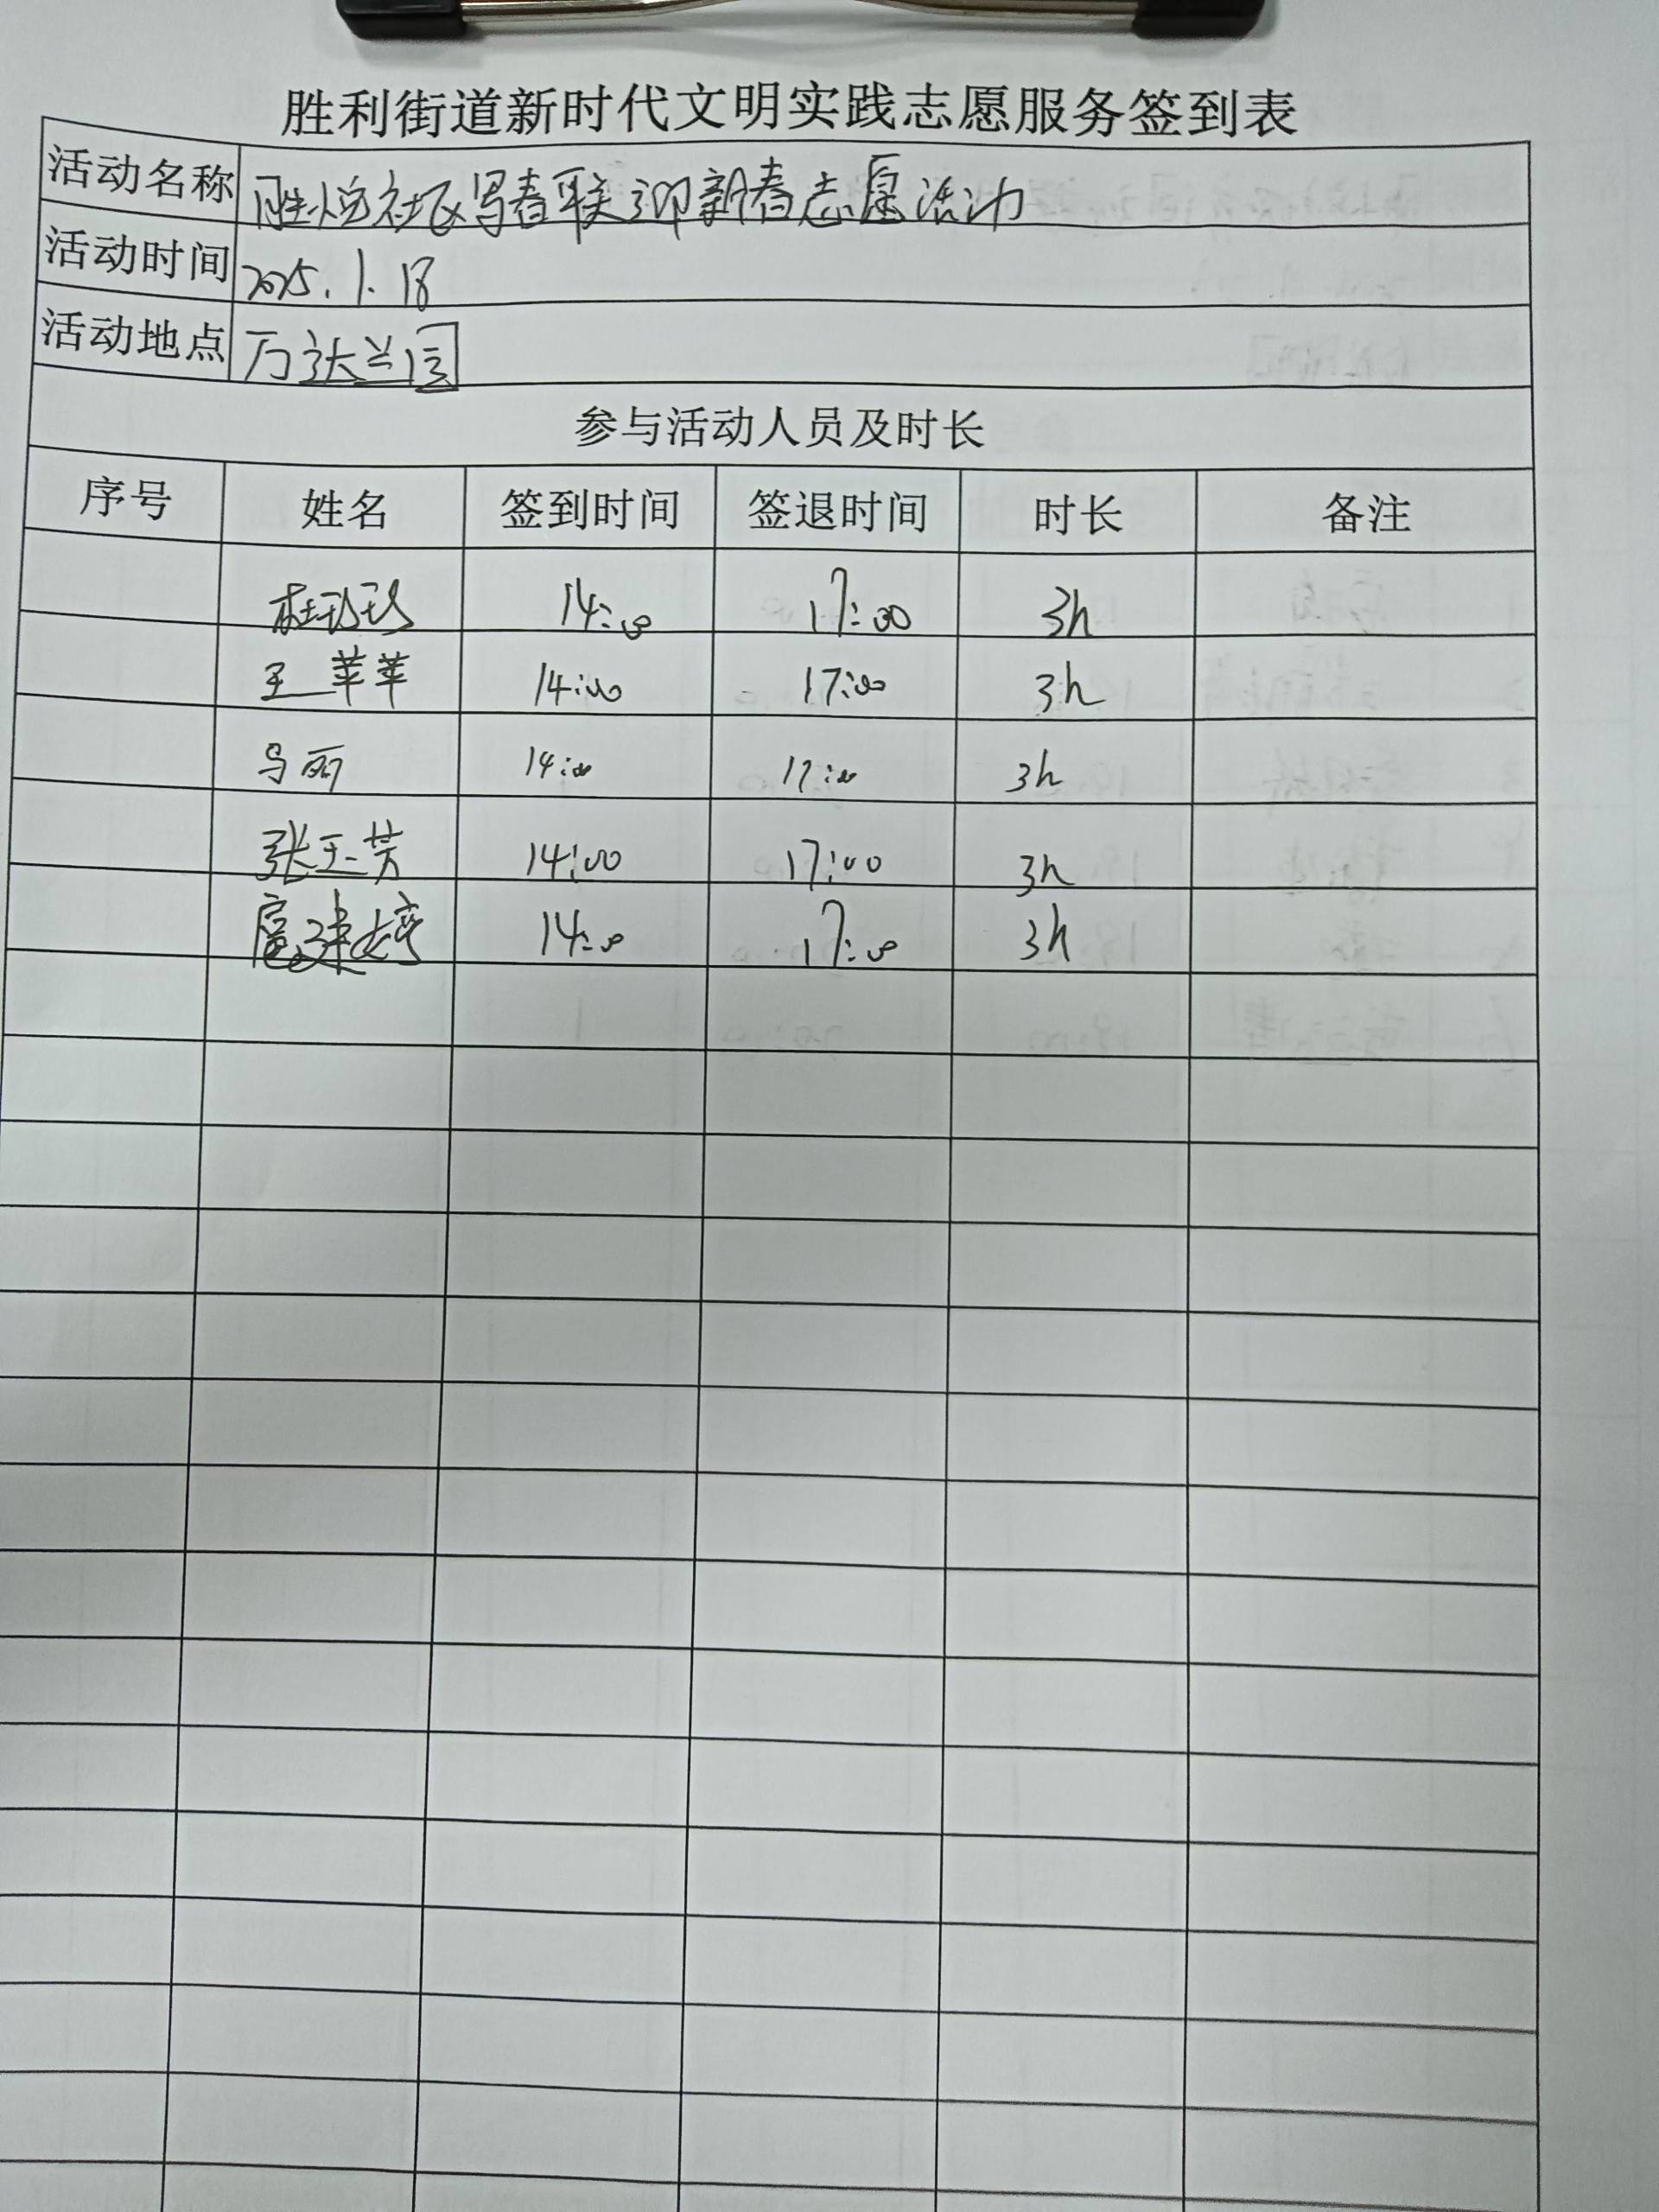 胜利街道新时代文明实践志愿服务签到表
活动名称 胜悦社区写春联迎新春志愿活动
活动时间 2025.1.18
活动地点 万达兰园
参与活动人员及时长
序号 姓名 签到时间 签退时间 时长 备注
杜珍珍 14:00 17:00 3h
王苹苹 14:00 17:00 3h
马丽 14:00 17:00 3h
张玉芳 14:00 17:00 3h
扈建婷 14:00 17:00 3h